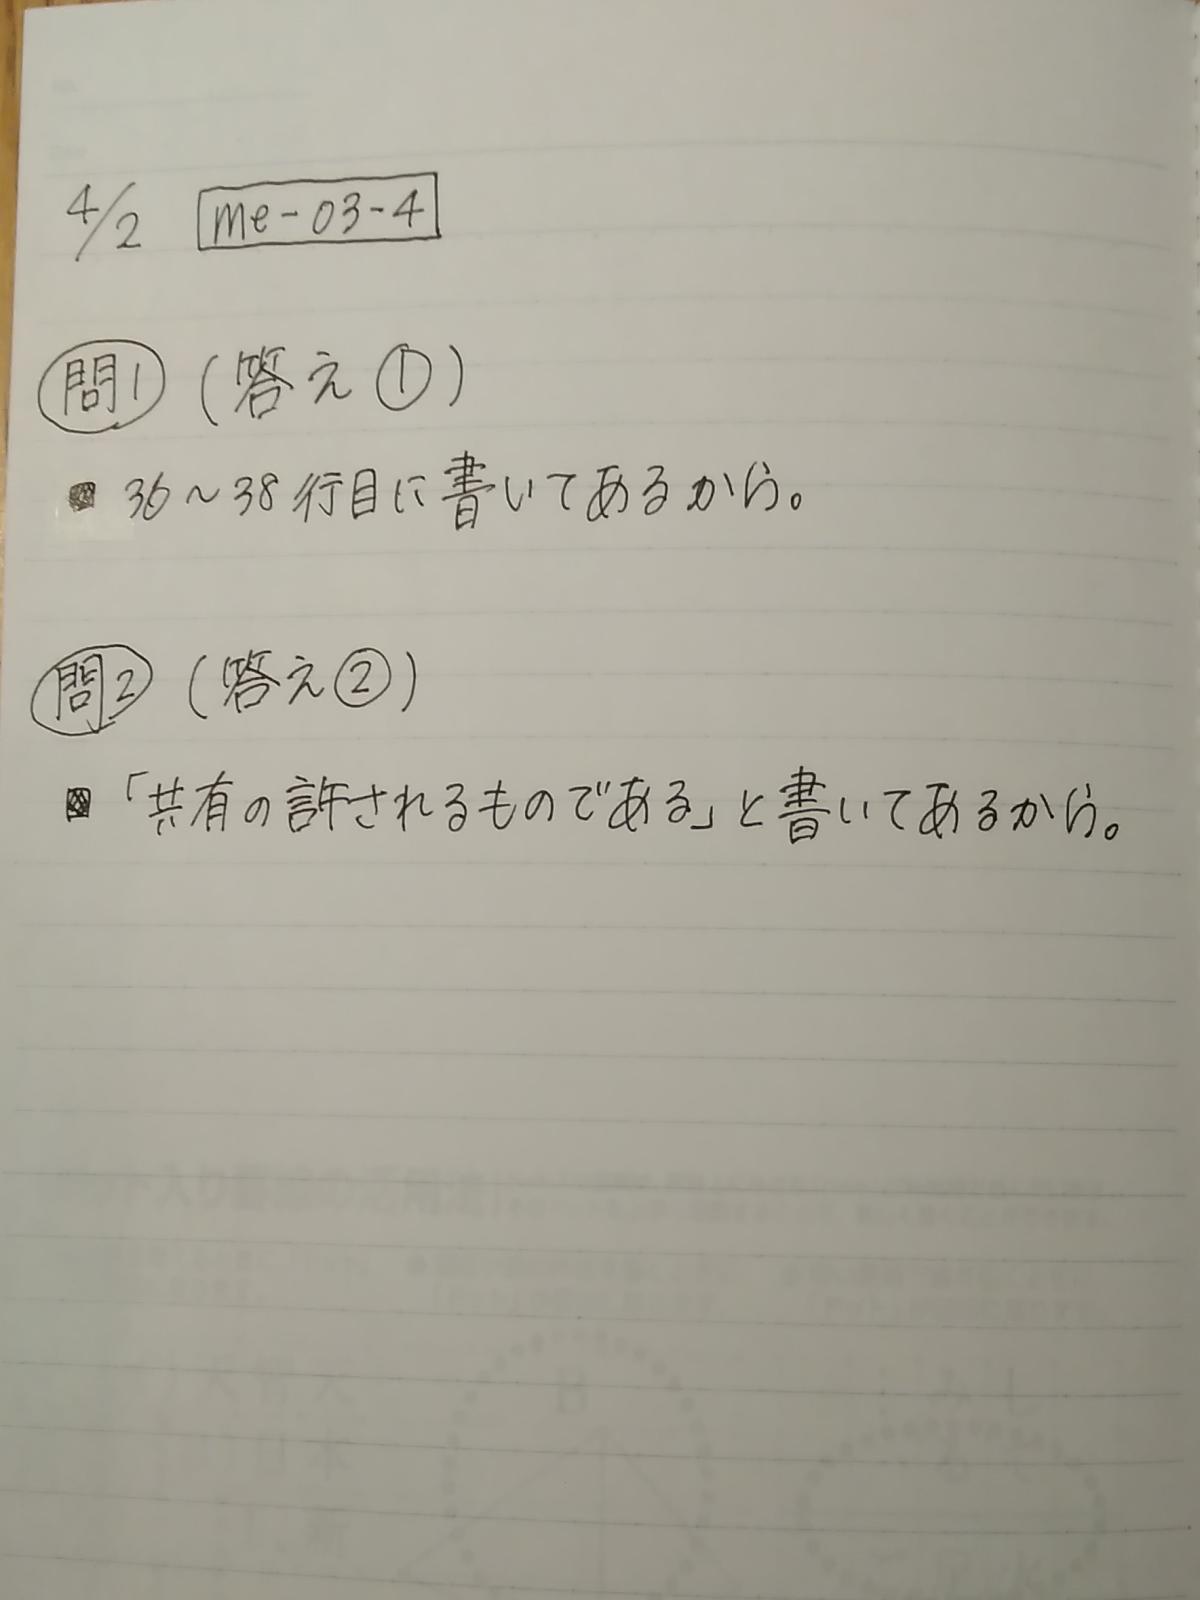 4/2 me-03-4
問1 (答え①)
■ 36〜38行目に書いてあるから。
問2 (答え②)
■ 「共有の許されるものである」と書いてあるから。